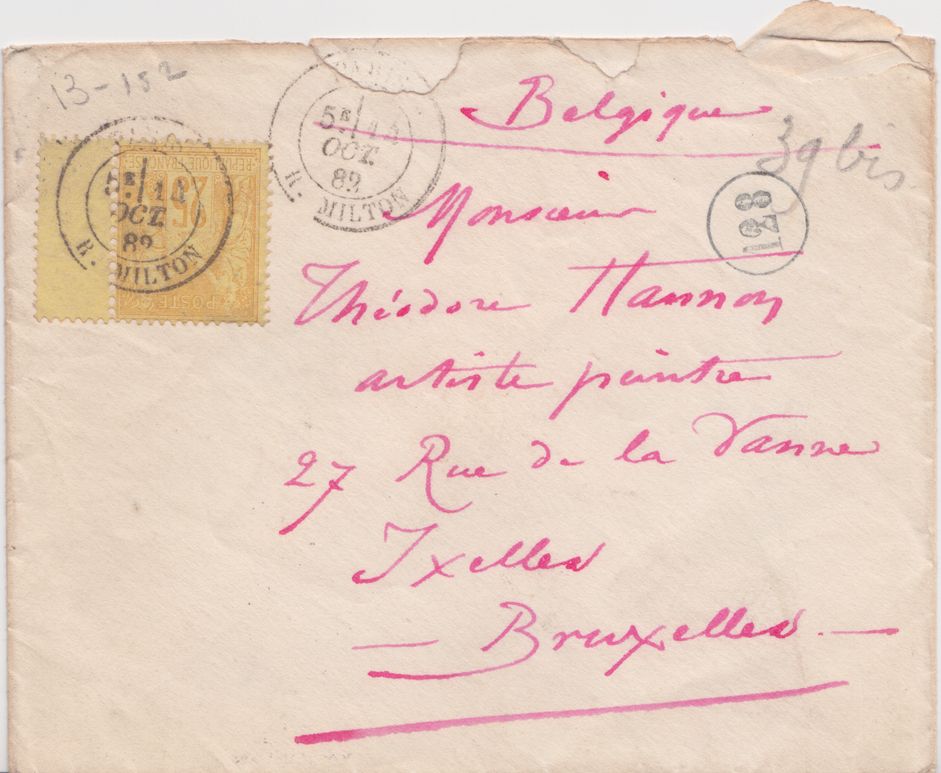 13-152
PARIS
5E/14
OCT
82
R. MILTON
RÉPUBLIQUE FRANÇAISE
25
POSTES
5E/14
OCT
82
R. MILTON
Belgique
39 bis
128
Monsieur
Théodore Hannon
artiste peintre
27 Rue de la Vanne
Ixelles
— Bruxelles. —